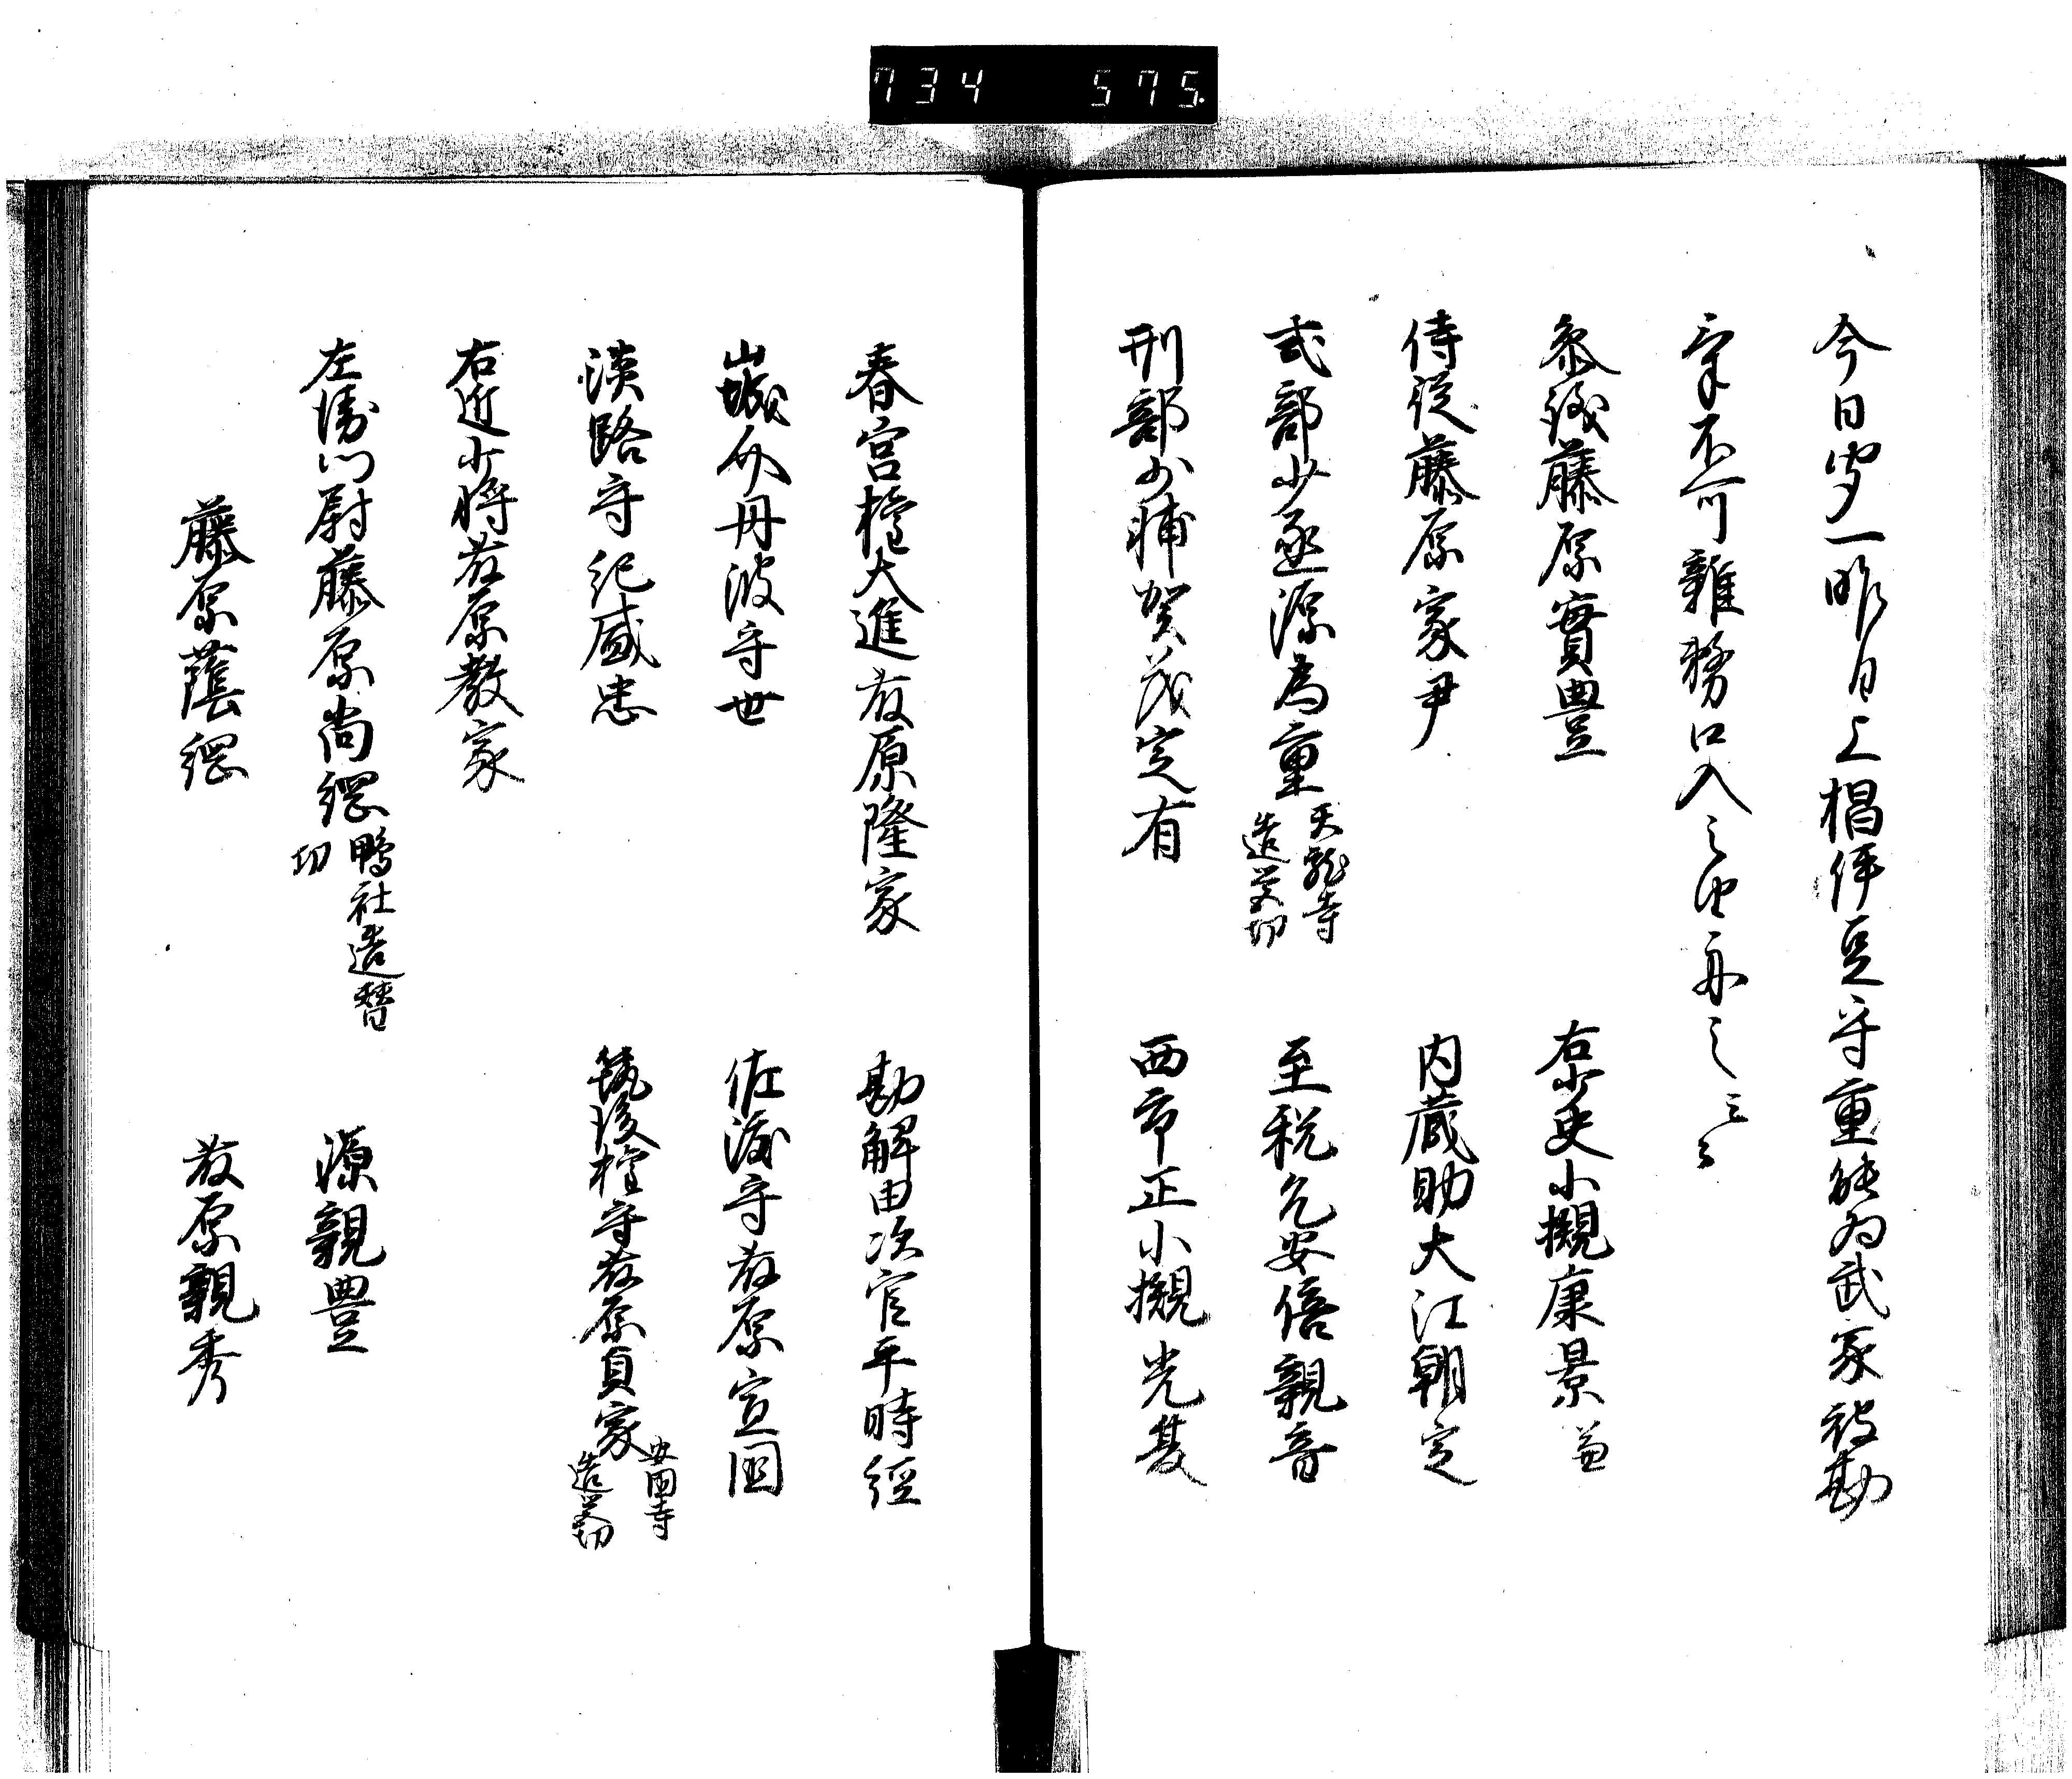 734 575
今日聞一昨日上椙伊豆守重能為武家被勘
事不可雑務口入之由命之云々
参議藤原實豊
右大史小槻康景兼
侍従藤原家尹
内蔵助大江朝定
式部少丞源為重天龍寺
造営功
主税允安倍親音
刑部少輔賀茂定有
西市正小槻光夏
春宮権大進藤原隆家
勘解由次官平時経
山城介丹波守世
佐渡守藤原宣国
淡路守紀盛忠
筑後権守藤原貞家安国寺
造営功
右近少将藤原教家
左衛門尉藤原尚綱鴨社造替
功
源親豊
藤原蔭綱
藤原親秀